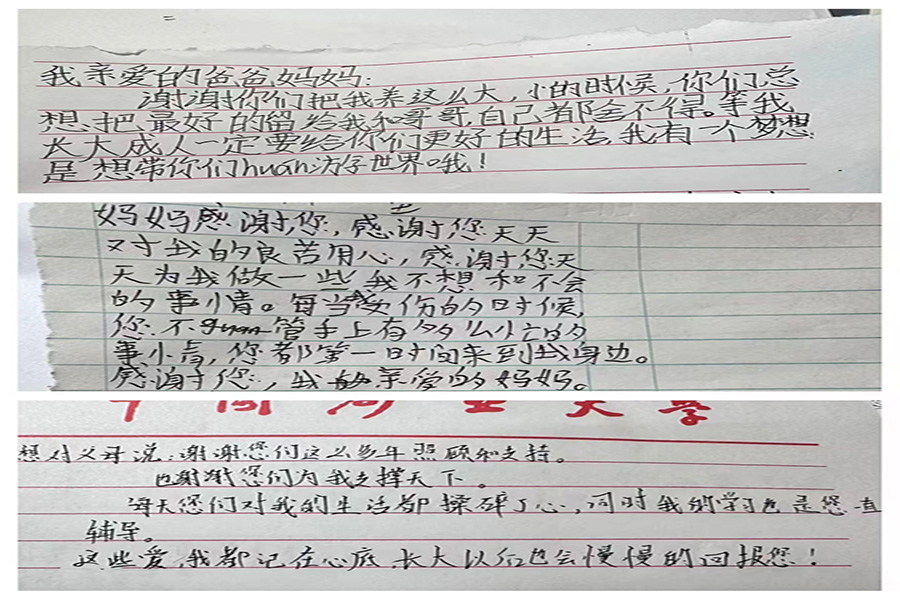 我亲爱的爸爸妈妈:
谢谢你们把我养这么大,小的时候,你们总
想把最好的留给我和哥哥,自己都舍不得。等我
长大成人一定要给你们更好的生活,我有一个梦想
是想带你们huán游字世界哦!
妈妈感谢您,感谢您天天
对我的良苦用心,感谢您天
天为我做一些我不想和不会
的事情。每当我伤的时候,
您不管手上有多么忙的
事小青,您都第一时间来到我身边。
感谢您,我亲爱的妈妈。
大学
想对父母说:谢谢您们这么多年照顾和支持。
也谢谢您们为我支撑天下。
每天您们对我的生活都操碎了心,同时我的学习也是您一直
辅导。
这些爱,我都记在心底,长大以后也会慢慢的回报您!